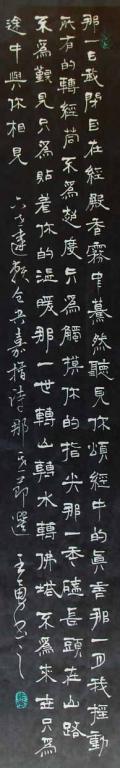 那一日我閉目在經殿香霧中驀然聽見你頌經中的真言那一月我搖動
所有的轉經筒不為超度只為觸摸你的指尖那一年磕長頭在山路
不為覲見只為貼着你的溫暖那一世轉山轉水轉佛塔不為來世只為
途中與你相見 六世達賴倉央嘉措詩那一世節選 王勇書之